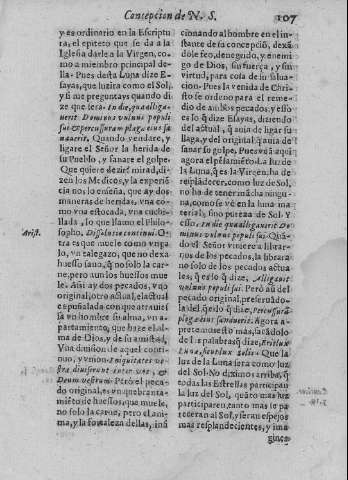 Concepcion de N. S. 107
y es ordinario en la Escriptu
ra, el epiteto que se da a la
Iglesia darle a la Virgen, co-
mo a miembro principal de-
lla. Pues desta Luna dize E-
sayas, que luzira como el Sol,
y si me preguntays quando di
ze que sera. In die, qua alliga-
uerit Dominus vulnus populi
sui & percussuram plagæ eius sa
nauerit. Quando vendare, y
ligare el Señor la herida de
su Pueblo, y sanare el golpe.
Que quiere dezir mirad, di-
zen los Medicos, y la experiē
cia nos lo enseña, que ay dos
maneras de heridas, vna co-
mo vna estocada, vna cuchi-
llada, lo que llamo el Philo-
Arist.
sopho. Dissolutio continui. O-
tra es que muele como vn pa-
lo, vn talegazo, que no dexa
huesso sano, q̄ no solo la car-
ne, pero aun los huessos mue
le. Assi ay dos pecados, vn o
original, otro actual, el actual
es puñalada con que atrauie
sa vn hombre su alma, vn a-
partamiento, que haze el al-
ma de Dios, y de su amistad,
Vna diuision de aquel conti-
nuo, y vnion Iniquitates ve-
stræ diuiserunt inter vos, &
Deum vestrum. Pero el peca-
do original, es vn quebranta-
miēto de huessos, que muele,
no solo la carne, pero el ani-
ma, y la fortaleza dellas, insi
cionando al hombre en el in-
stante de su concepciō, dexā
dole feo, denegido, y enemi
go de Dios, sin fuerça, y sin
virtud, para cosa de su salua-
cion. Pues la venida de Chri-
sto se ordeno para el reme-
dio de ambos pecados, y esso
es lo q̄ dize Esayas, diuiendo
del actual, q̄ auia de ligar su
llaga, y del original, q̄ auia de
sanar su golpe. Pues vea aqui
agora el pēsamiēto. La luz de
la Luna, q̄ es la Virgen, ha de
resplādecer, como luz de Sol,
no ha de tener mācha ningu-
na, como se vè en la luna ma-
terial, sino pureza de Sol. Y
esso. In die qua alligauerit Do-
minus vulnus populi sui. Quā-
do el Señor viniere a librar-
nos de los pecados, la librara
no solo de los pecados actua
les, q̄ es lo q̄ dize, Alligauit
vulnus populi sui. Pero aū del
pecado original, preseruādo-
la del, q̄ es lo q̄ dize, Percussurā
plagæ eius sanauerit. Agora a-
preto mas esto mas, sacādolo
de las palabras q̄ dize, Erit lux
Lunæ, sicut lux solis. Que la luz
de la Luna sera como luz
del Sol. No diximos arriba, q̄
todas las Estrellas participan
la luz del Sol, quāto mas luz
participaren, tanto mas se pa
recerā al Sol, y serā espejos
mas resplandecientes, y ima
gines